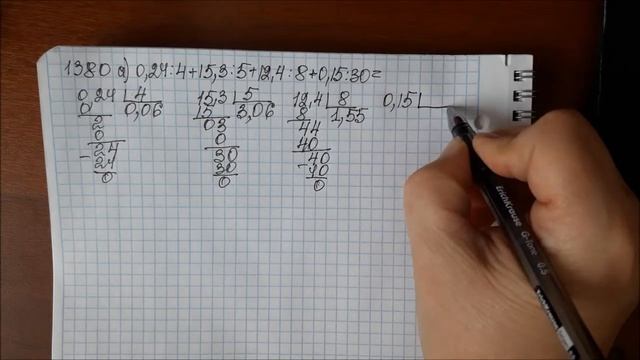 1380 а) 0,24:4+15,3:5+12,4:8+0,15:30=
0,24 4 15,3 5 12,4 8 0,15
0 0,06 15 3,06 8 1,55
2 03 44
0 0 40
-24 30 -40
24 30 40
0 0 0
ErichKrause G-Tone 0.5